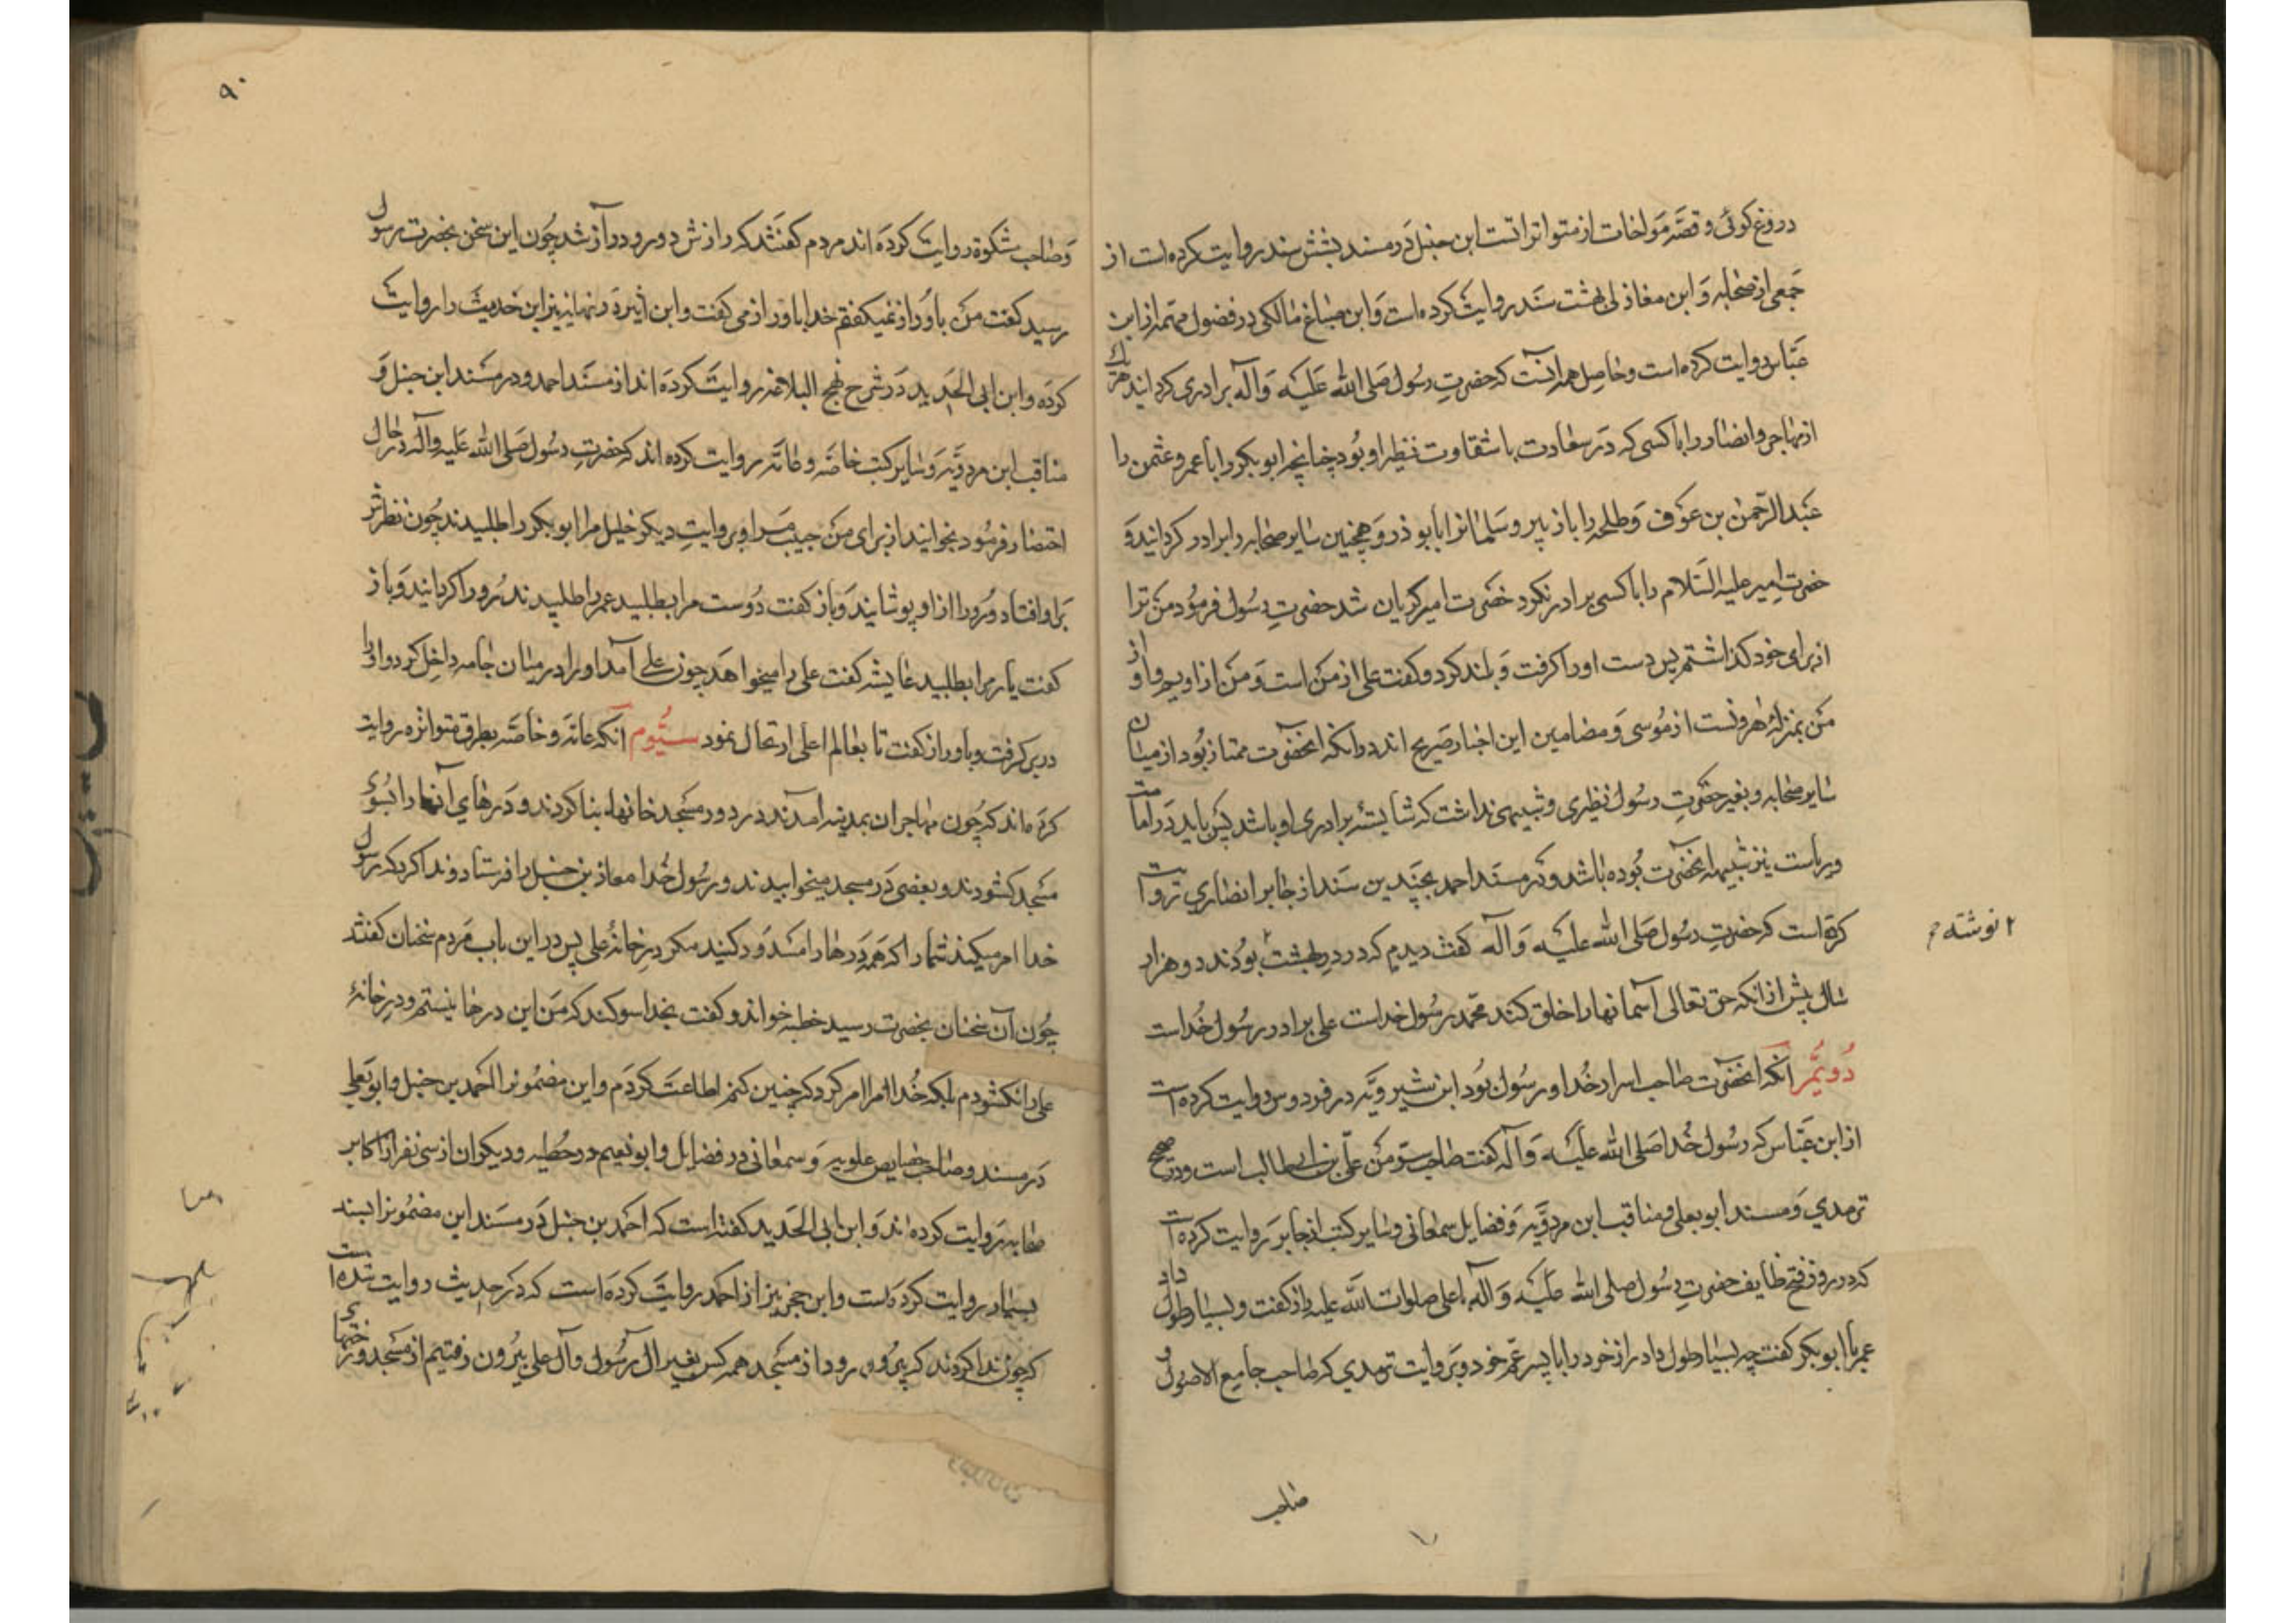 دروغ كوئى و قصّه مواخات از متواتراتست ابن حنبل در مسند بشش سند روايت كرده است از
جمعى از صحابه و ابن مغازلى بهشت سند روايت كرده است و ابن صباغ مالكى در فصول مهمه از ابن
عباس روايت كرده است و حاصل همه آنست كه حضرت رسول صلى الله عليه و آله برادرى كردانيد هر يك
از مهاجر و انصار را با كسى كه در سعادت يا شقاوت نظير او بود چنانچه ابو بكر را با عمر و عثمن را
عبد الرّحمن بن عوف و طلحه را با زبير و سلمانرا با ابو ذر و همچنين ساير صحابه را برادر كردانيد و
حضرت امير عليه السّلام را با كسى برادر نكرد حضرت امير كريان شد حضرت رسول فرمود من ترا
از براى خود كذاشتم پس دست او را كرفت و بلند كرد و كفت على از من است و من از اويم و او از
من بمنزلۀ هرونست از موسى و مضامين اين اخبار صريح اند در آنكه آنحضرت ممتاز بود از ميان
ساير صحابه و بغير حضرت رسول نظيرى و شبيهى نداشت كه شايستۀ برادرى او باشد پس بايد در امامت
و رياست نيز شبيه آنحضرت بوده باشد و در مسند احمد بچندين سند از جابر انصاري روايت
كرده است كه حضرت رسول صلى الله عليه و آله كفت ديدم كه در در بهشت ۲ بودند دو هزار
۲ نوشته م
سال پيش از انكه حق تعالى آسمانها را خلق كند محمد رسول خداست على برادر رسول خداست
دويّم آنكه آنحضرت صاحب اسرار خدا و رسول بود ابن شيرويه در فردوس روايت كرده است
از ابن عباس كه رسول خدا صلى الله عليه و آله كفت صاحب سرّ من علىّ بن ابى طالب است و در صحيح
ترمدي و مسند ابو يعلى و مناقب ابن مردويّه و فضايل سمعانى و ساير كتب از جابر روايت كرده است
كه در روز فتح طايف حضرت رسول صلى الله عليه و آله با على صلوات الله عليه راز كفت و بسيار طول داد
عمر با ابو بكر كفت چه بسيار طول داد راز خود را با پسر عمّ خود و بروايت ترمدي كه صاحب جامع الاصول و
صاحب
۹۰
و صاحب مشكوة روايت كرده اند مردم كفتند كه رازش دور و دراز شد چون اين سخن بحضرت رسول
رسيد كفت من با او راز نميكفتم خدا با او راز مى كفت و ابن اثير در نهايه نيز اين حديث را روايت
كرده و ابن ابى الحديد در شرح نهج البلاغه روايت كرده اند از مسند احمد و در مسند ابن حنبل و
مناقب ابن مردويّه و ساير كتب خاصّه و عامّه روايت كرده اند كه حضرت رسول صلى الله عليه و آله در حال
احتضار فرمود بخوانيد از براى من حبيب مرا و بروايت ديكر خليل مرا ابو بكر را طلبيدند چون نظرش
بر او افتاد و رو را از او پوشانيد و باز كفت دوست مرا بطلبيد عمر را طلبيدند رو را كردانيد و باز
كفت يار مرا بطلبيد عايشه كفت على را ميخواهد چون على آمد او را در ميان جامه داخل كرد و او را
در بر كرفت و با او راز كفت تا بعالم اعلى ارتحال نمود سيّوم آنكه عامّه و خاصّه بطرق متواتره روايت
كرده اند كه چون مهاجران بمدينه آمدند در دور مسجد خانها بنا كردند و درهاي آنها را بسوى
مسجد كشودند و بعضى در مسجد ميخوابيدند و رسول خدا معاذ بن جبل را فرستاد و ندا كرد كه رسول
خدا امر ميكند شما را كه همه درها را مسدود كنيد مكر در خانۀ على پس در اين باب مردم سخنان كفتند
چون آن سخنان بحضرت رسيد خطبه خواند و كفت بخدا سوكند كه من اين درها نبستم و در خانۀ
على را نكشودم بلكه خدا مرا امر كرد كه چنين كنم اطاعت كردم و اين مضمونرا احمد بن حنبل و ابو يعلى
در مسند و صاحب خصايص علويه و سمعانى در فضايل و ابو نعيم در حليه و ديكران از سى نفر از اكابر
صحابه روايت كرده اند و ابن ابى الحديد كفته است كه احمد بن حنبل در مسند اين مضمونرا بسند
بسيار روايت كرده است و ابن حجر نيز از احمد روايت كرده است كه در حديث روايت شده است
كه چون ندا كردند كه بيرون رود از مسجد همه كس بغير آل رسول و آل على بيرون رفتيم از مسجد و